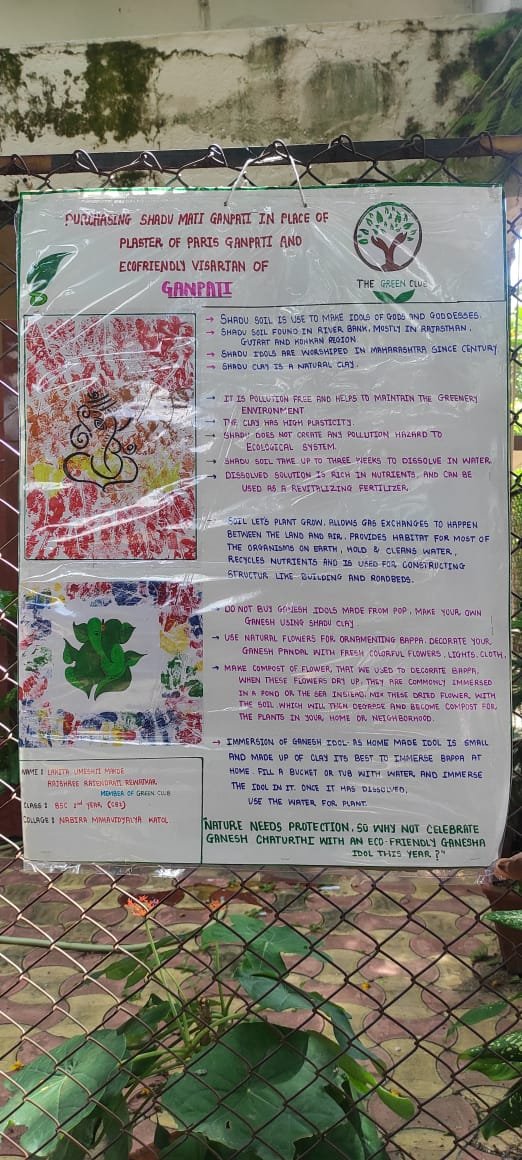 PURCHASING SHADU MATI GANPATI IN PLACE OF
PLASTER OF PARIS GANPATI AND
ECOFRIENDLY VISARJAN OF
GANPATI
THE GREEN CLUB
→ SHADU SOIL IS USE TO MAKE IDOLS OF GODS AND GODDESSES.
→ SHADU SOIL FOUND IN RIVER BANK, MOSTLY IN RAJASTHAN,
GUJRAT AND KONKAN REGION
→ SHADU IDOLS ARE WORSHIPED IN MAHARASHTRA SINCE CENTURY
→ SHADU CLAY IS A NATURAL CLAY.
→ IT IS POLLUTION FREE AND HELPS TO MAINTAIN THE GREENERY
ENVIRONMENT
→ THE CLAY HAS HIGH PLASTICITY.
→ SHADU DOES NOT CREATE ANY POLLUTION HAZARD TO
ECOLOGICAL SYSTEM.
→ SHADU SOIL TAKE UP TO THREE WEEKS TO DISSOLVE IN WATER.
→ DISSOLVED SOLUTION IS RICH IN NUTRIENTS, AND CAN BE
USED AS A REVITALIZING FERTILIZER.
SOIL LETS PLANT GROW, ALLOWS GAS EXCHANGES TO HAPPEN
BETWEEN THE LAND AND AIR, PROVIDES HABITAT FOR MOST OF
THE ORGANISMS ON EARTH, HOLD & CLEANS WATER,
RECYCLES NUTRIENTS AND IS USED FOR CONSTRUCTING
STRUCTUR LIKE BUILDING AND ROADBEDS.
→ DO NOT BUY GANESH IDOLS MADE FROM POP, MAKE YOUR OWN
GANESH USING SHADU CLAY
→ USE NATURAL FLOWERS FOR ORNAMENTING BAPPA. DECORATE YOUR
GANESH PANDAL WITH FRESH COLORFUL FLOWERS, LIGHTS, CLOTH.
→ MAKE COMPOST OF FLOWER, THAT WE USED TO DECORATE BAPPA,
WHEN THESE FLOWERS DRY UP, THEY ARE COMMONLY IMMERSED
IN A POND OR THE SEA INSTEAD, MIX THESE DRIED FLOWER WITH
THE SOIL WHICH WILL THEN DEGRADE AND BECOME COMPOST FOR
THE PLANTS IN YOUR HOME OR NEIGHBORHOOD.
→ IMMERSION OF GANESH IDOL- AS HOME MADE IDOL IS SMALL
AND MADE UP OF CLAY ITS BEST TO IMMERSE BAPPA AT
HOME. FILL A BUCKET OR TUB WITH WATER AND IMMERSE
THE IDOL IN IT. ONCE IT HAS DISSOLVED,
USE THE WATER FOR PLANT.
"NATURE NEEDS PROTECTION, SO WHY NOT CELEBRATE
GANESH CHATURTHI WITH AN ECO-FRIENDLY GANESHA
IDOL THIS YEAR ?"
NAME : UMESHJI
RAJSHREE RAJENDRAJI REWATKAR
MEMBER OF GREEN CLUB
CLASS : BSC 2nd YEAR (CBZ)
COLLAGE : NABIRA MAHAVIDYALYA KATOL